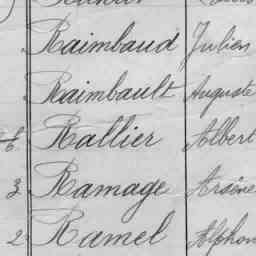 Raimbaud Julien
Raimbault Auguste
Rallier Albert
3 Ramage Arsène
2 Ramel Alphon